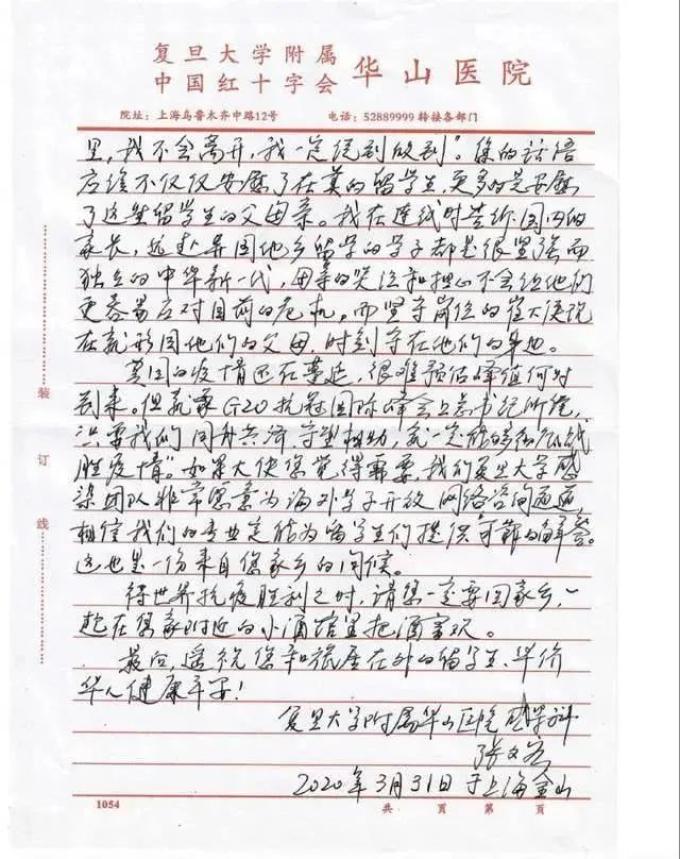 复旦大学附属
中国红十字会 华山医院
院址：上海乌鲁木齐中路12号 电话：52889999转接各部门
里，我不会离开，我一定说到做到”。您的话语
应该不仅仅安慰了在英的留学生，更多的是安慰
了这些留学生的父母亲。我在连线时告诉国内的
家长，远赴异国他乡留学的学子都是很坚强而
独立的中华新一代，母亲的哭泣和担心不会让他们
更容易应对目前的危机。而坚守岗位的崔大使现
在就形同他们的父母，时刻守在他们的身边。
英国的疫情还在蔓延，很难预估峰值何时
到来。但就像G20抗冠国际峰会上总书记所说，
只要我们同舟共济，守望相助，就一定能够彻底战
胜疫情”。如果大使您觉得需要，我们复旦大学感
染团队非常愿意为海外学子开放网络咨询通道，
相信我们的专业定能为留学生们提供可靠的解答。
这也是一份来自您家乡的问候。
待世界抗疫胜利之时，请您一定要回家乡，一
起在您家附近的小酒馆里把酒言欢。
最后，遥祝您和旅居在外的留学生、华侨
华人健康平安！
复旦大学附属华山医院感染科
张文宏
2020年3月31日于上海金山
装
订
线
1054 共 页 第 页